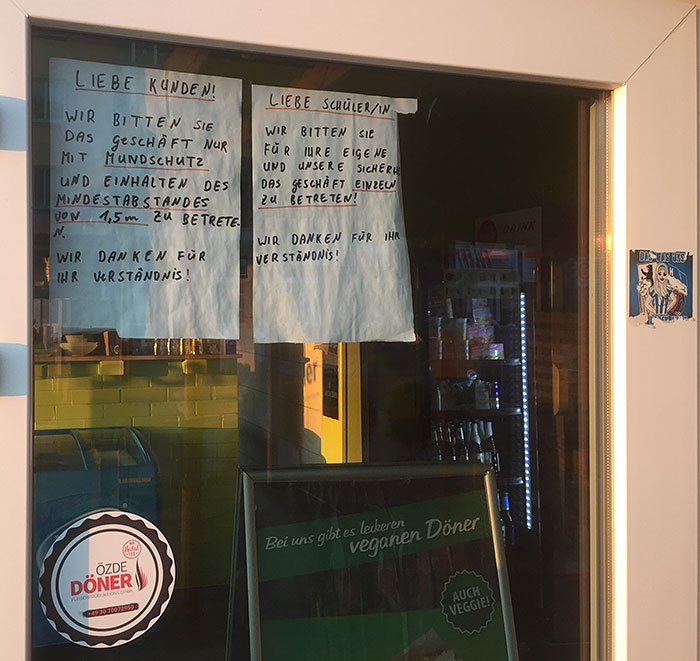 LIEBE KUNDEN!
WIR BITTEN SIE
DAS GESCHÄFT NUR
MIT MUNDSCHUTZ
UND EINHALTEN DES
MINDESTABSTANDES
VON 1,5m ZU BETRETE-
N.
WIR DANKEN FÜR
IHR VERSTÄNDNIS!
LIEBE SCHÜLER/IN
WIR BITTEN SIE
FÜR IHRE EIGENE
UND UNSERE SICHERH
DAS GESCHÄFT EINZELN
ZU BETRETEN!
WIR DANKEN FÜR IHR
VERSTÄNDNIS!
DRINK
Bei uns gibt es leckeren
veganen Döner
AUCH
VEGGIE!
ÖZDE
DÖNER
+49 30 70072950